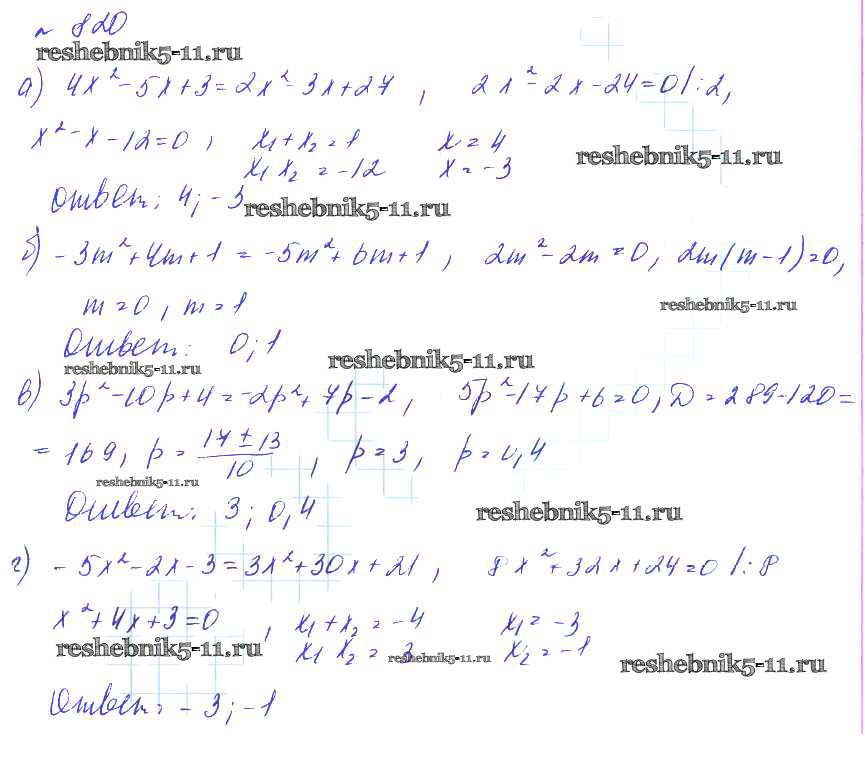 № 820
reshebnik5-11.ru
а) 4x² - 5x + 3 = 2x² - 3x + 27 , 2x² - 2x - 24 = 0 /: 2,
x² - x - 12 = 0 , x₁ + x₂ = 1 x = 4
reshebnik5-11.ru
x₁ x₂ = -12 x = -3
Ответ: 4; -3
reshebnik5-11.ru
б) -3m² + 4m + 1 = -5m² + 6m + 1 , 2m² - 2m = 0, 2m(m - 1) = 0,
m = 0 , m = 1
reshebnik5-11.ru
Ответ: 0; 1
reshebnik5-11.ru
reshebnik5-11.ru
в) 3p² - 10p + 4 = -2p² + 7p - 2 , 5p² - 17p + 6 = 0, D = 289 - 120 =
= 169, p = (17 ± 13)/10 , p = 3 , p = 0,4
reshebnik5-11.ru
Ответ: 3; 0,4
reshebnik5-11.ru
г) -5x² - 2x - 3 = 3x² + 30x + 21 , 8x² + 32x + 24 = 0 /: 8
x² + 4x + 3 = 0 , x₁ + x₂ = -4 x₁ = -3
reshebnik5-11.ru
x₁ x₂ = 3 x₂ = -1
reshebnik5-11.ru
reshebnik5-11.ru
Ответ: -3; -1